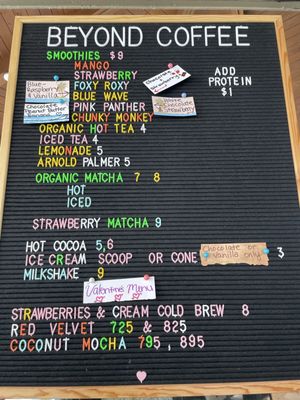 BEYOND COFFEE
SMOOTHIES $9
MANGO
STRAWBERRY
Chocolate & Strawberry
ADD
PROTEIN
$1
Blue-
Raspberry
& Vanilla
FOXY ROXY
BLUE WAVE
Vanilla
& Chocolate
& Strawberry
Chocolate
Peanut Butter
Banana
PINK PANTHER
CHUNKY MONKEY
ORGANIC HOT TEA 4
ICED TEA 4
LEMONADE 5
ARNOLD PALMER 5
ORGANIC MATCHA 7 8
HOT
ICED
STRAWBERRY MATCHA 9
HOT COCOA 5,6
ICE CREAM SCOOP OR CONE 3
Chocolate or
Vanilla only
MILKSHAKE 9
Valentine's Menu
STRAWBERRIES & CREAM COLD BREW 8
RED VELVET 725 & 825
COCONUT MOCHA 795, 895